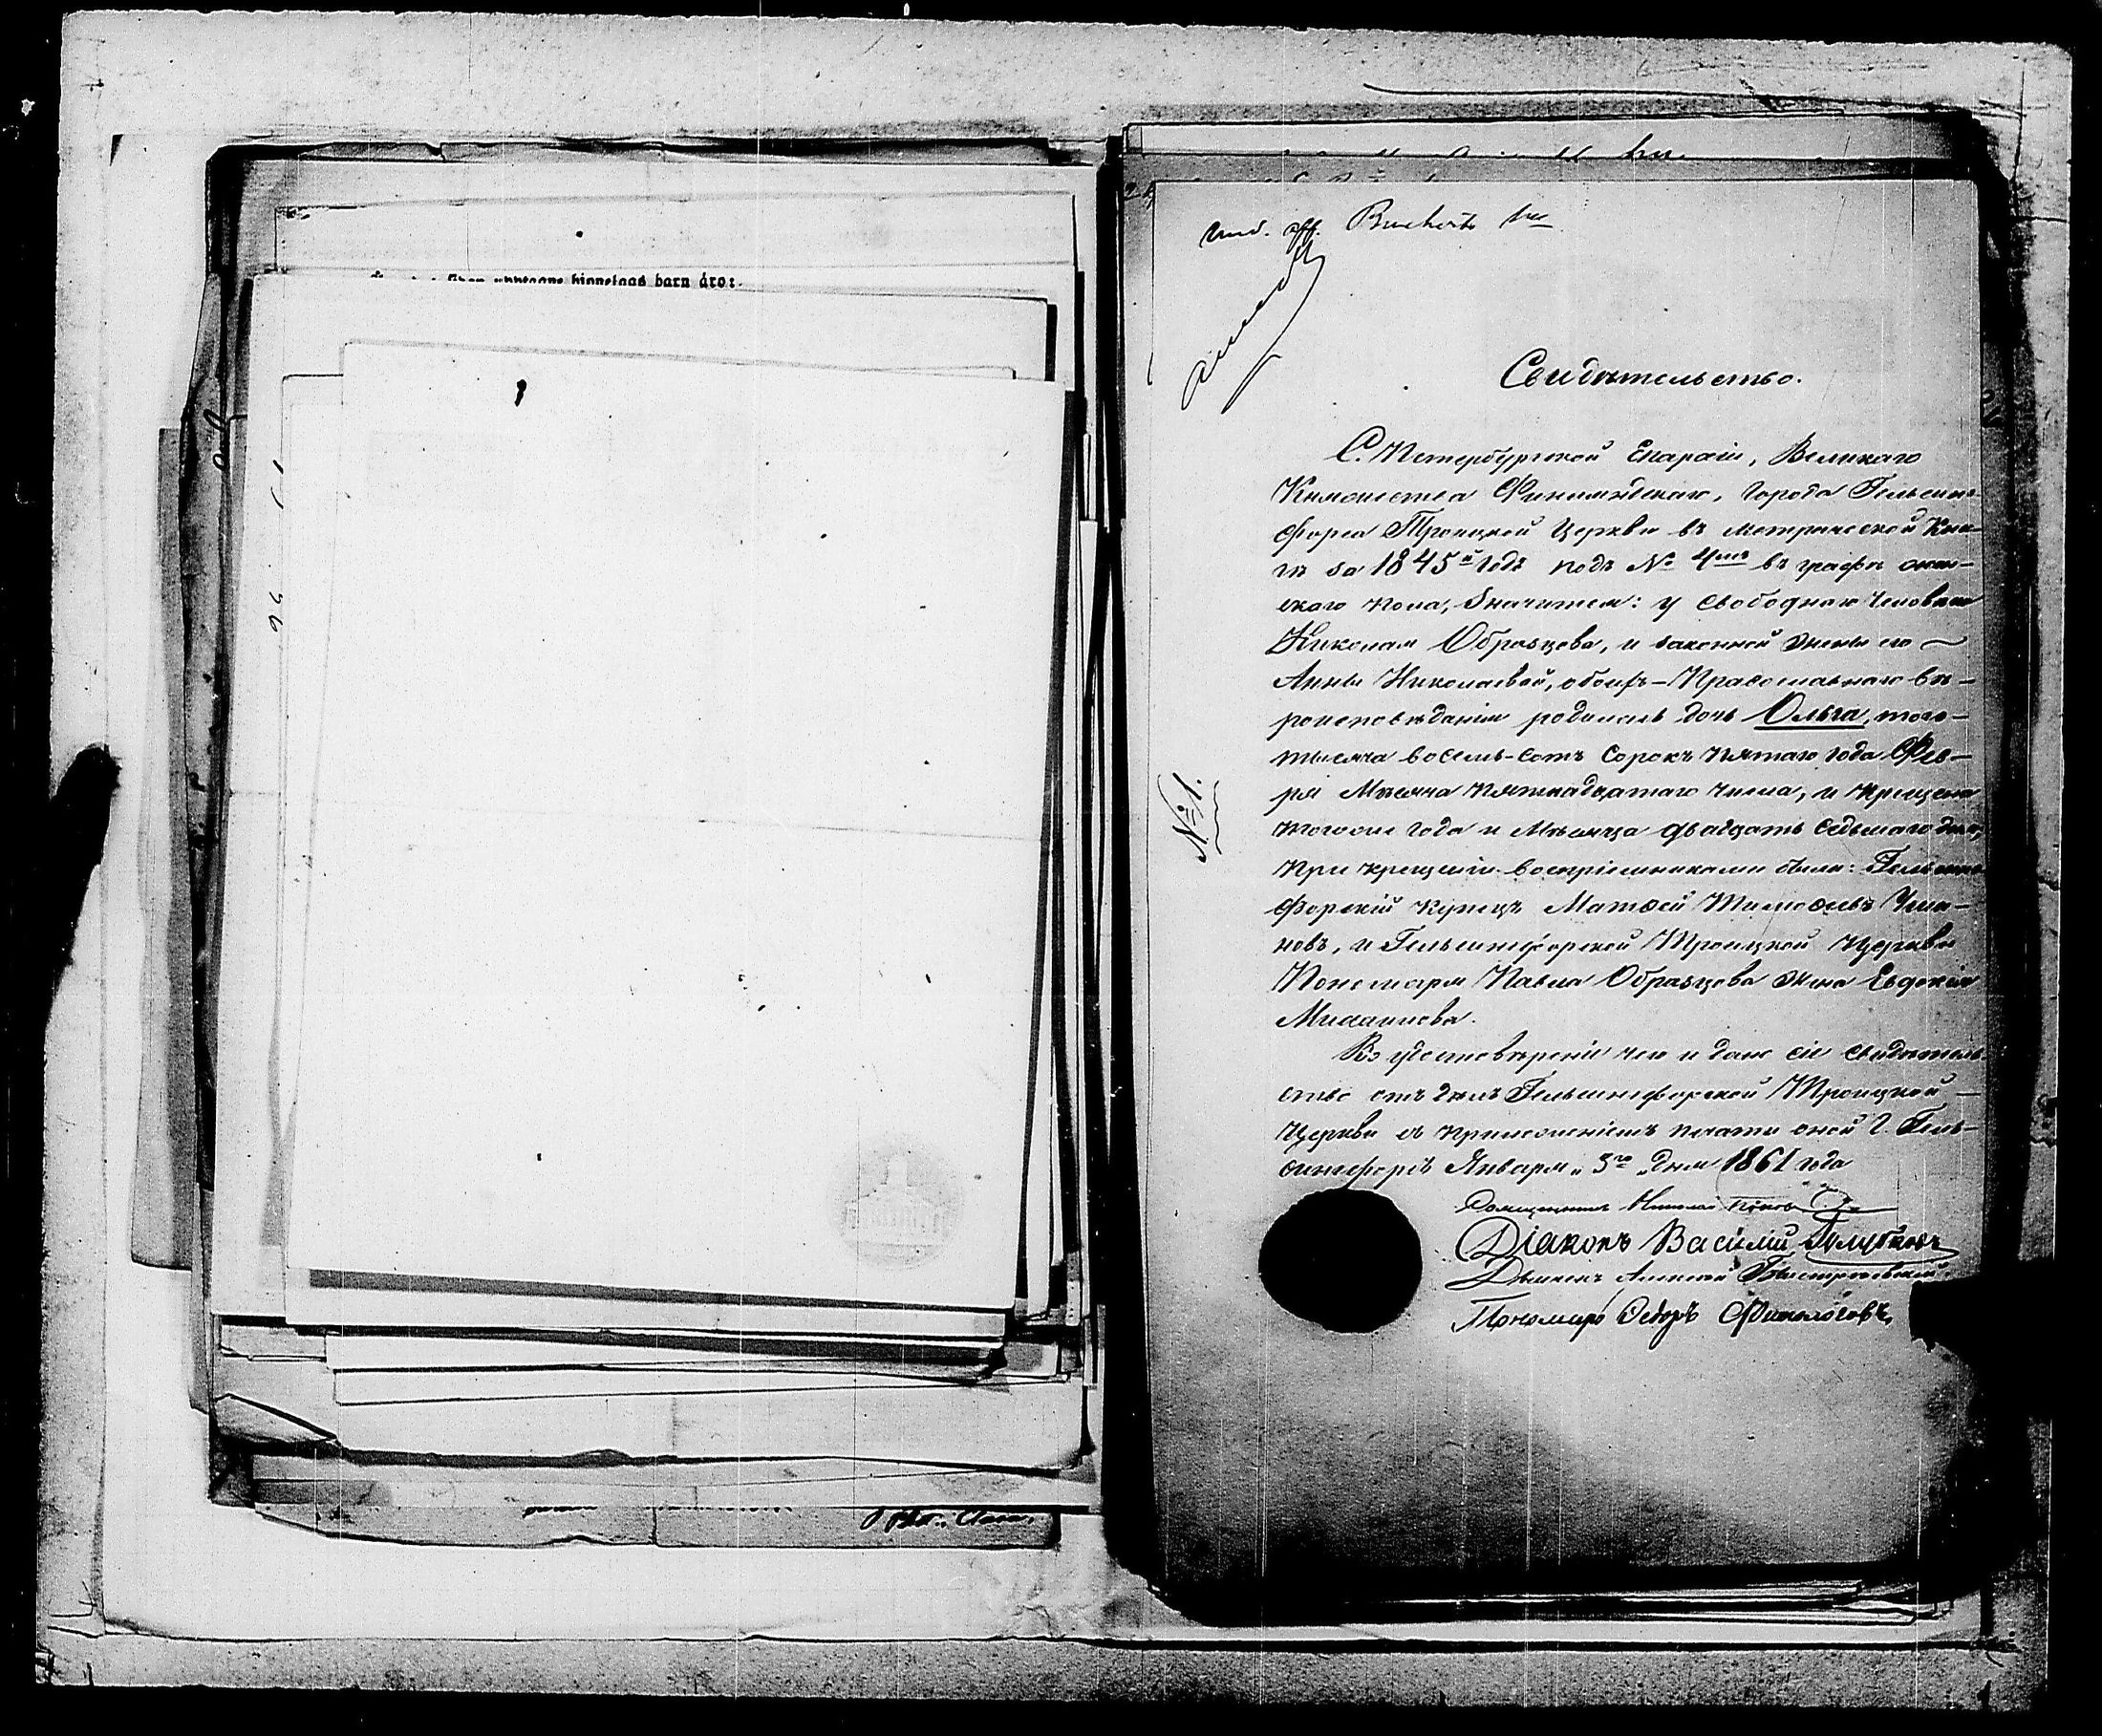 barn äro:
Свидѣтельство.
С. Петербургской Епархіи, Великаго
Княжества Финляндскаго, города Гельсинг-
форса Троицкой Церкви въ метрической Кни-
гѣ за 1845й годъ подъ № 4мъ въ графѣ жен-
скаго пола, значится: у свободнаго человѣка
Николая Образцова, и законной жены его
Анны Николаевой, обоихъ - Православнаго вѣ-
роисповѣданія родилась дочь Ольга, того-
тысяча восемь-сотъ сорокъ пятаго года Фев-
ря Мѣсяца пятнадцатаго числа, и крещена
тогоже года и Мѣсяца двадцать седьмаго дня,
при крещеніи воспріемниками были: Гельсинг-
форскій купецъ Матѳей Тимоѳеевъ Уша-
ковъ, и Гельсингфорской Троицкой Церкви
Пономаря Павла Образцова жена Евдокія
Въ удостовѣреніе чего и дано сіе свидѣтель-
ство отъ Гельсингфорской Троицкой
Церкви съ приложеніемъ печати оной г. Гель-
сингфорсъ Января „3го„ дня 1861 года
Священникъ Николай Поповъ
Діаконъ Василій
Дьячекъ Алексѣй
Пономарь Ѳедоръ
№ 1.